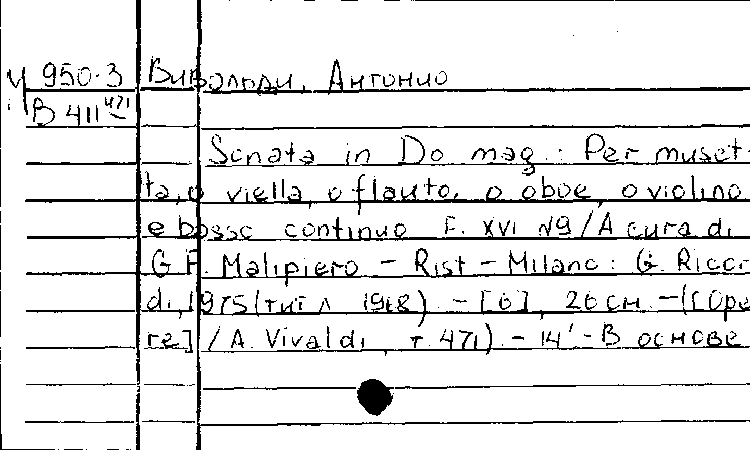 Ч 950-3 Вивальди, Антонио
В 411 471
Sonata in Do mag.: Per muset-
ta, o viella, o flauto, o oboe, o violino
e basso continuo F. XVI №9 / A cura di
G F. Malipiero - Rist - Milano: G. Ricor
di, 1975 (тит л 1968) - [6], 26 см - ([Ope
re] / A. Vivaldi, т. 471) - 14' - В основе